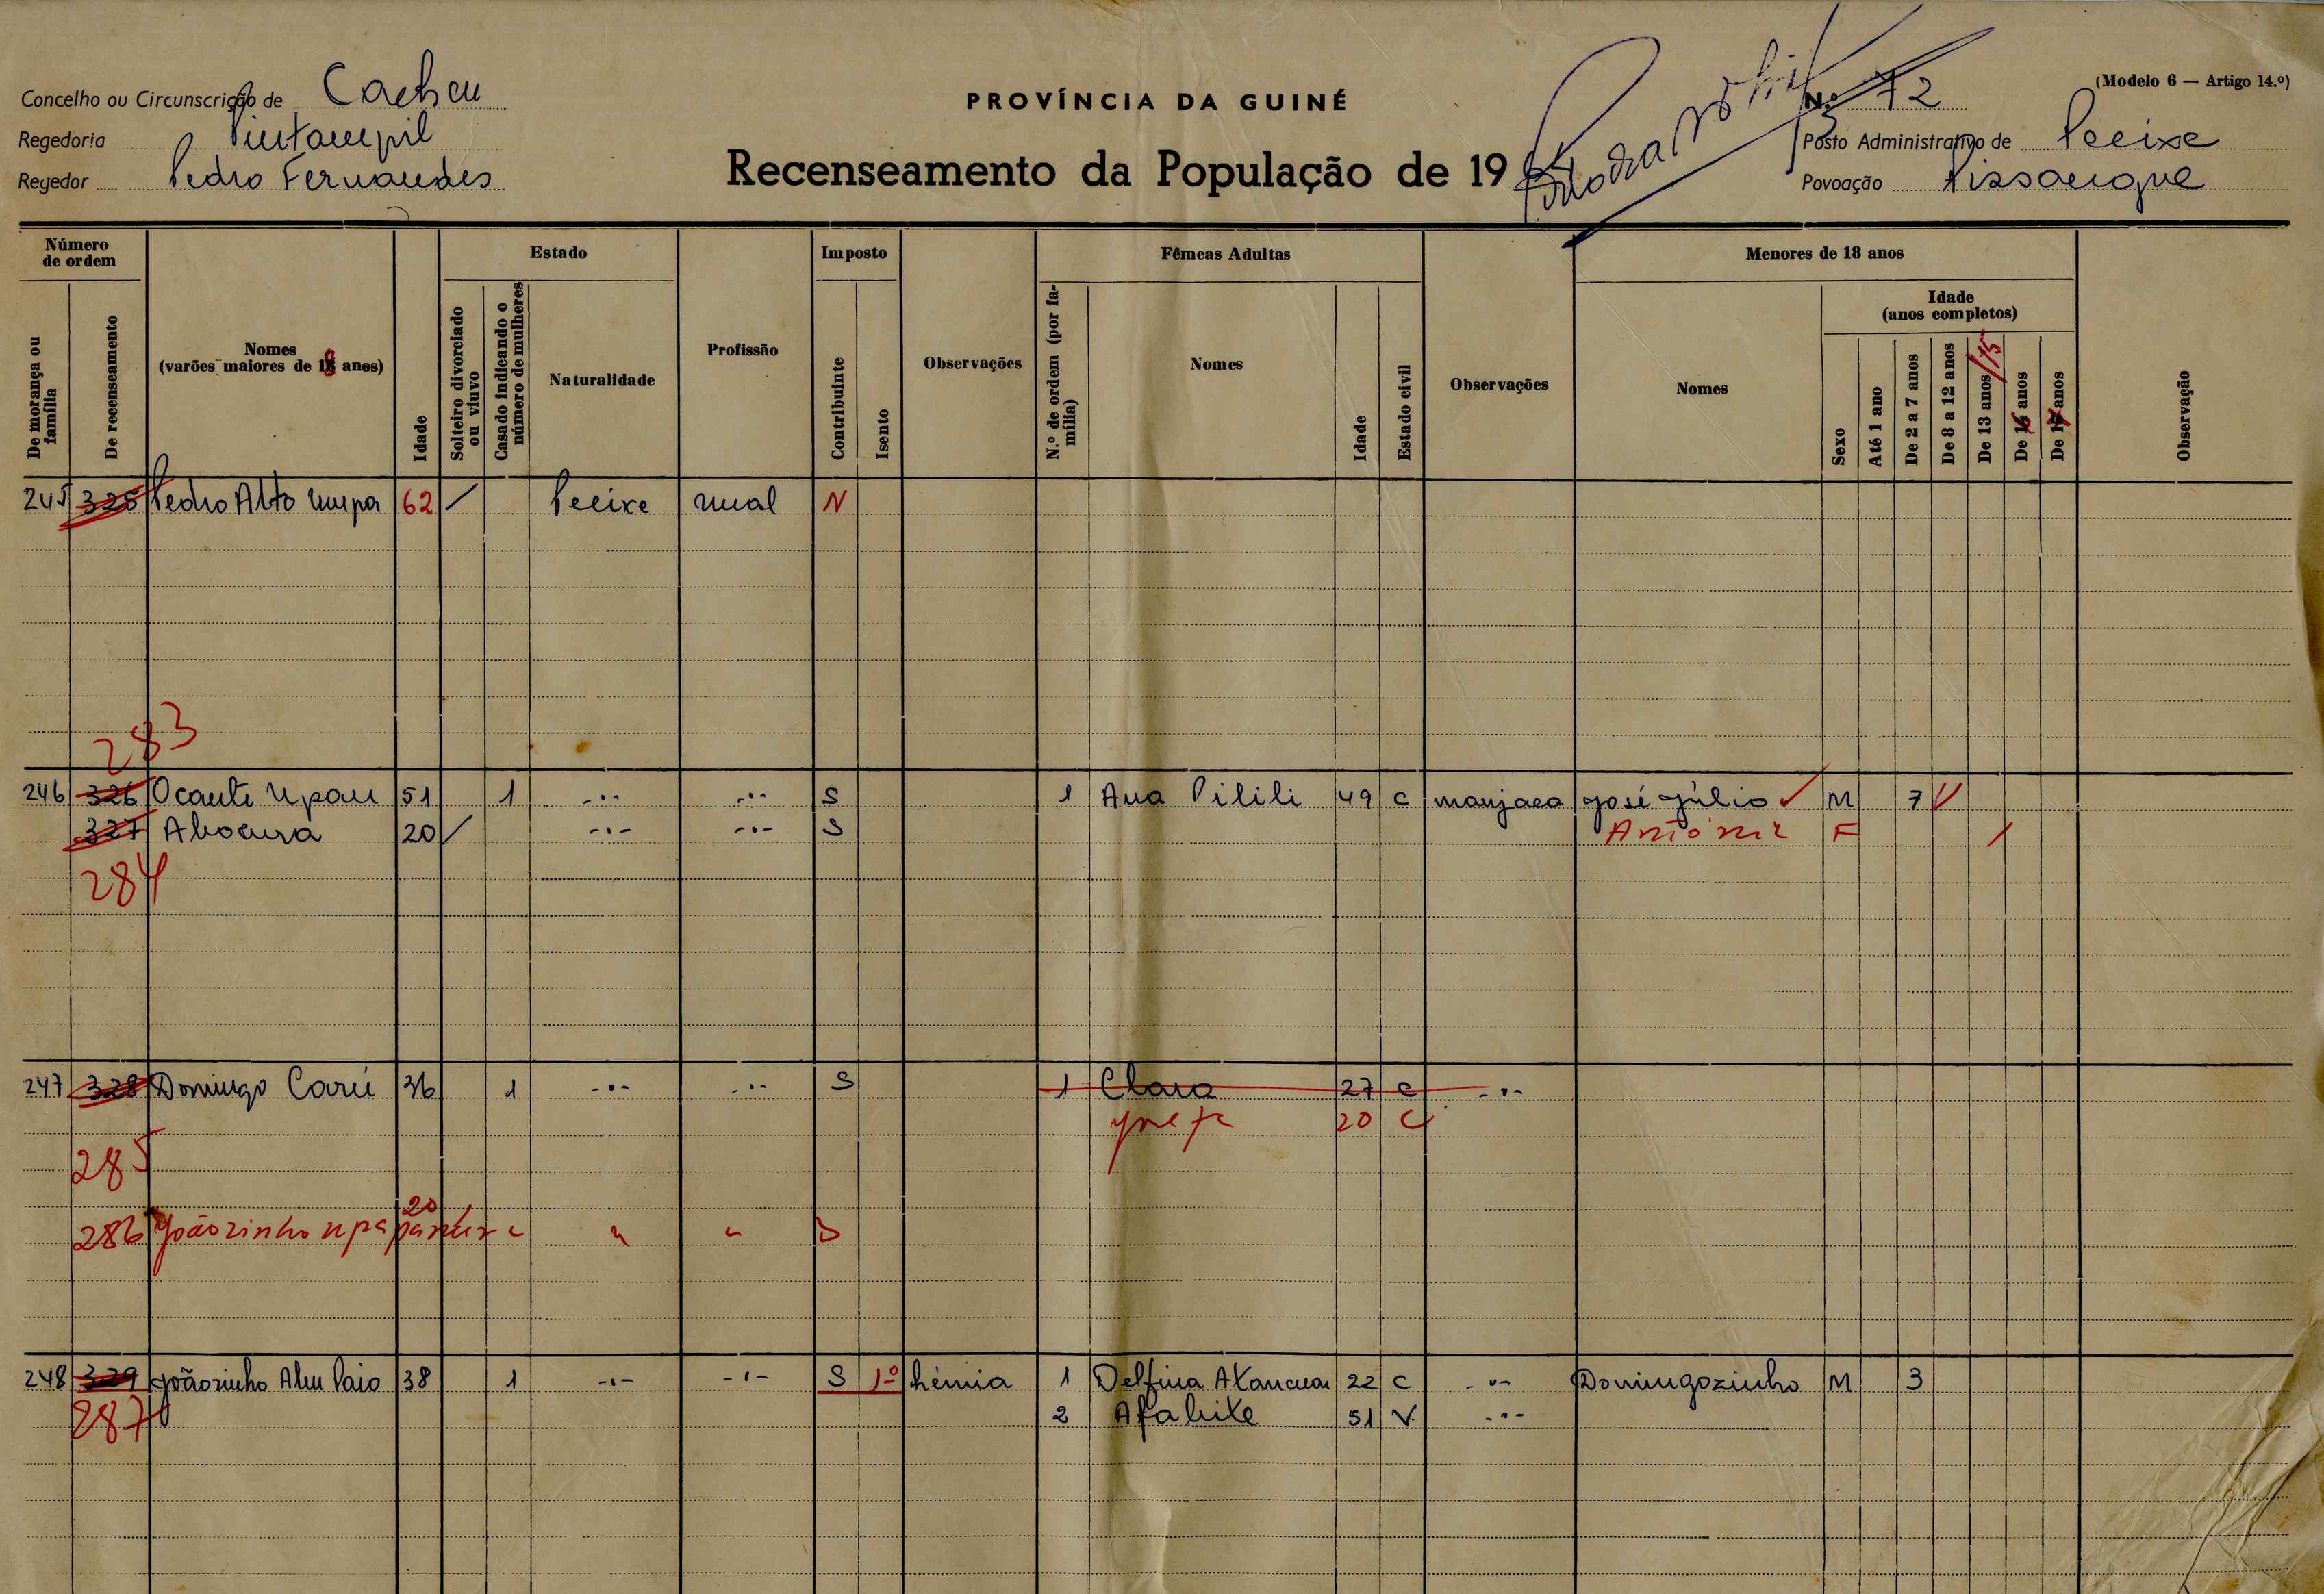 (Modelo 6 — Artigo 14.º)
PROVÍNCIA DA GUINÉ
Concelho ou Circunscrição de Cacheu
N.º 72
Regedoria Pintampil
Posto Administrativo de Pecixe
Regedor Pedro Fernandes
Recenseamento da População de 19
Povoação Pissangue
Número de ordem
Estado
Imposto
Fêmeas Adultas
Menores de 18 anos
Idade (anos completos)
De morança ou família
De recenseamento
Nomes (varões maiores de 18 anos)
Idade
Solteiro divorciado ou viuvo
Casado indicando o número de mulheres
Naturalidade
Profissão
Contribuinte
Isento
Observações
N.º de ordem (por família)
Nomes
Idade
Estado civil
Observações
Nomes
Sexo
Até 1 ano
De 2 a 7 anos
De 8 a 12 anos
De 13 anos /15
De 16 anos
De 17 anos
Observação
245 325 Pedro Alto Umpa 62 / Pecixe rural N
283
246 326 Ocante Upau 51 1 -"- -"- S 1 Ana Pilili 49 C manjaca José Júlio M 7
327 Abocura 20 / -"- -"- S António F /
284
247 328 Domingo Carú 36 1 -"- -"- S 1 Clara 27 C -"-
20 C
285
20
286 Joãozinho " "
248 329 Joãozinho Abu Paio 38 1 -"- -"- S 1º hérnia 1 Delfina Atancuar 22 C -"- Domingozinho M 3
287 2 Afabite 51 V -"-